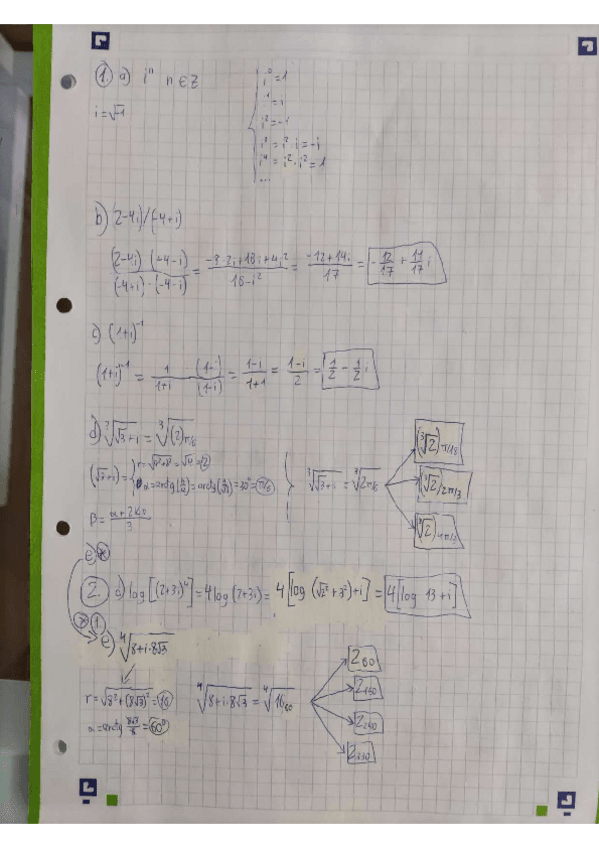 1. a) iⁿ n ∈ Z
i = √-1
i⁰ = 1
i¹ = i
i² = -1
i³ = i²·i = -i
i⁴ = i²·i² = 1
...
b) (2-4i)/(-4+i)
(2-4i)·(-4-i) / (-4+i)·(-4-i) = -8-2i+16i+4i² / 16-i² = -12+14i / 17 = -12/17 + 14/17 i
c) (1+i)⁻¹
(1+i)⁻¹ = 1 / 1+i (1-i) / (1-i) = 1-i / 1+1 = 1-i / 2 = 1/2 - 1/2 i
d) ³√(√3+i) = ³√(2)π/6
(√3+i) = { r = √4 = 2
α = 30° = π/6
β = α+2kπ / 3
³√(√3+i) = ³√2π/6
(³√2)π/18
(³√2)
(³√2)
e) *
2. a) log[(2+3i)⁴] = 4log(2+3i) = 4[log(√2²+3²)+i] = 4[log 13+i]
* 1.
e) ⁴√8+i·8√3
r = √8²+(8√3)² = 16
α = arctg 8√3/8 = 60°
⁴√8+i·8√3 = ⁴√16₆₀
2₆₀
2₁₅₀
2₂₄₀
2₃₃₀